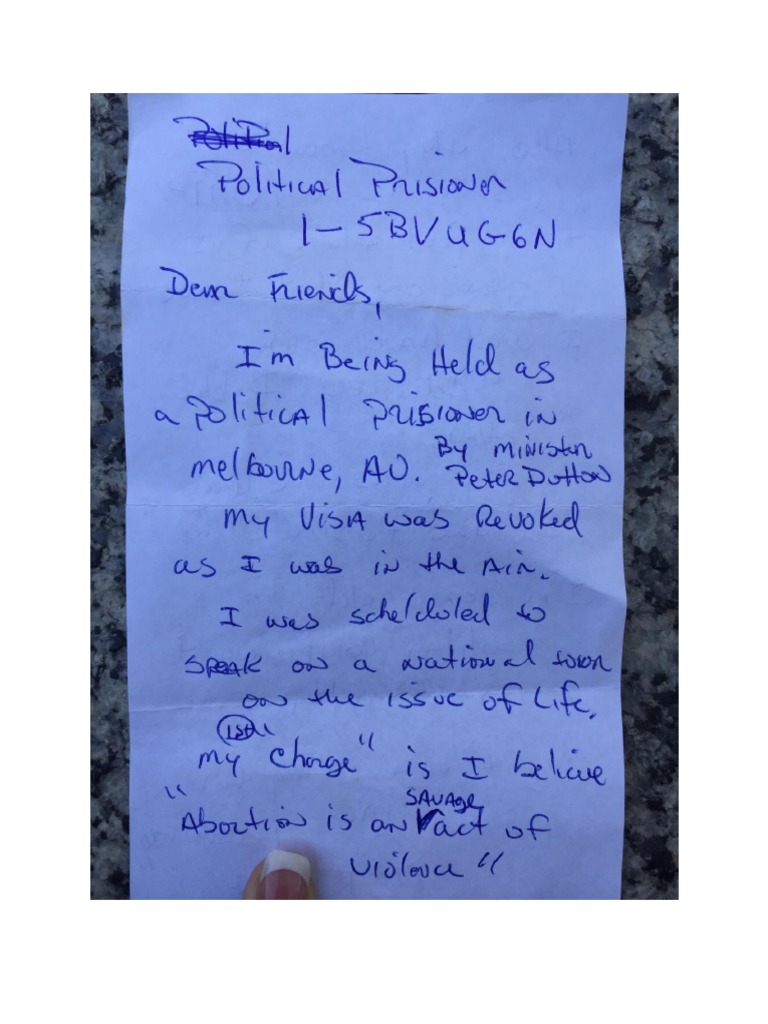 Political
Political Prisioner
1-5BVUG6N
Dear Friends,
I'm Being Held as
a political prisioner in
By Minister
Melbourne, AU. Peter Dutton
My Visa was Revoked
as I was in the Air.
I was scheduled to
speak on a national tour
on the issue of Life.
1st
"My charge" is I believe
savage
"Abortion is an act of
violence"